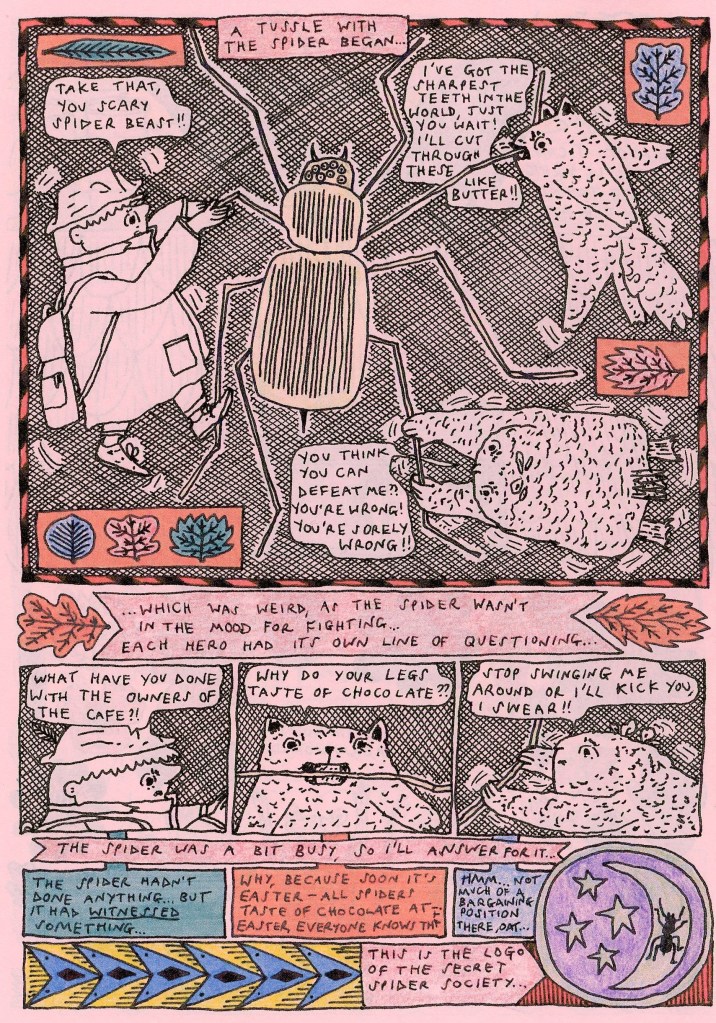 A TUSSLE WITH
THE SPIDER BEGAN...
TAKE THAT,
YOU SCARY
SPIDER BEAST!!
I'VE GOT THE
SHARPEST
TEETH IN THE
WORLD, JUST
YOU WAIT!
I'LL CUT
THROUGH
THESE LIKE
BUTTER!!
YOU THINK
YOU CAN
DEFEAT ME??
YOU'RE WRONG!
YOU'RE SORELY
WRONG!!
...WHICH WAS WEIRD, AS THE SPIDER WASN'T
IN THE MOOD FOR FIGHTING...
EACH HERO HAD ITS OWN LINE OF QUESTIONING...
WHAT HAVE YOU DONE
WITH THE OWNERS OF
THE CAFE?!
WHY DO YOUR LEGS
TASTE OF CHOCOLATE??
STOP SWINGING ME
AROUND OR I'LL KICK YOU,
I SWEAR!!
THE SPIDER WAS A BIT BUSY, SO I'LL ANSWER FOR IT...
THE SPIDER HADN'T
DONE ANYTHING... BUT
IT HAD WITNESSED
SOMETHING...
WHY, BECAUSE SOON IT'S
EASTER - ALL SPIDERS
TASTE OF CHOCOLATE AT
EASTER, EVERYONE KNOWS
HMM... NOT
MUCH OF A
BARGAINING
POSITION
THERE, OAT...
THIS IS THE LOGO
OF THE SECRET
SPIDER SOCIETY...